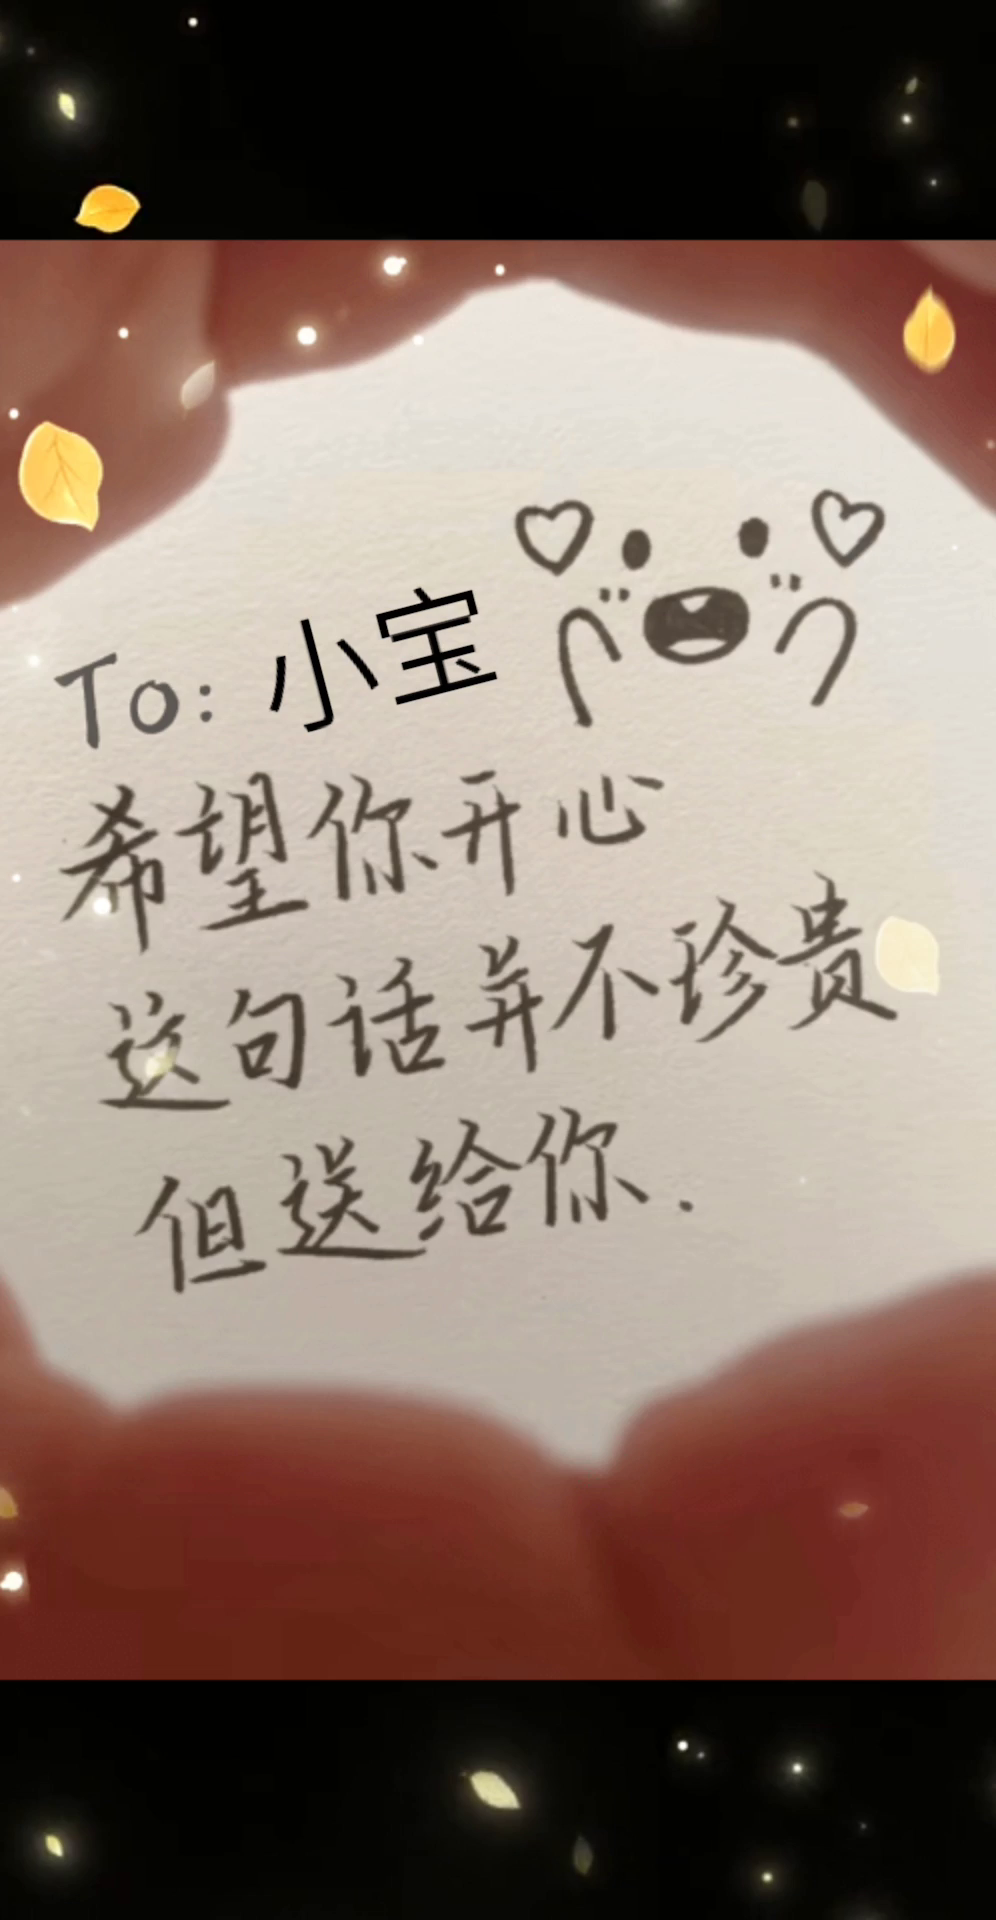 To: 小宝
希望你开心
这句话并不珍贵
但送给你.